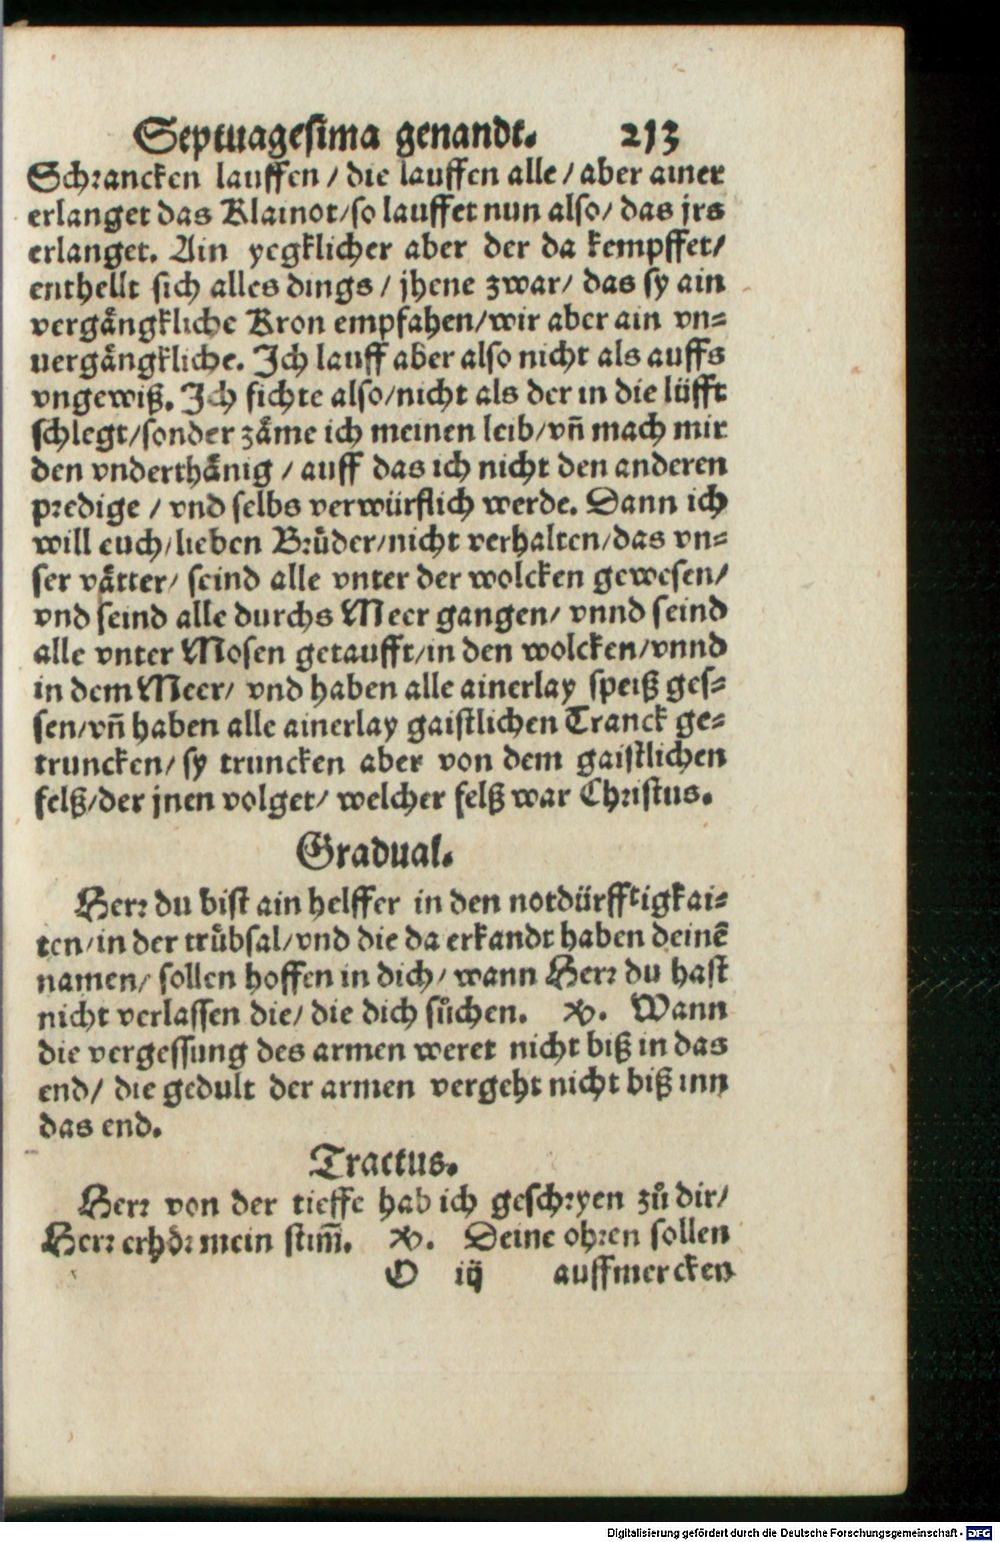 Septuagesima genandt. 213
Schrancken lauffen / die lauffen alle / aber ainer
erlanget das Klainot/so lauffet nun also/ das jrs
erlanget. Ain yegklicher aber der da kempffet/
enthellt sich alles dings / jhene zwar/ das sy ain
vergaͤngkliche Kron empfahen/wir aber ain vn⸗
uergaͤngkliche. Ich lauff aber also nicht als auffs
vngewiß. Ich fichte also/nicht als der in die lüfft
schlegt/sonder zaͤme ich meinen leib/vñ mach mir
den vnderthaͤnig / auff das ich nicht den anderen
predige / vnd selbs verwürflich werde. Dann ich
will euch/lieben Bruͤder/nicht verhalten/das vn⸗
ser vaͤtter/ seind alle vnter der wolcken gewesen/
vnd seind alle durchs Meer gangen/ vnnd seind
alle vnter Mosen getaufft/in den wolcken/vnnd
in dem Meer/ vnd haben alle ainerlay speiß ges⸗
sen/vñ haben alle ainerlay gaistlichen Tranck ge⸗
truncken/ sy truncken aber von dem gaistlichen
felß/der jnen volget/ welcher felß war Christus.
Gradual.
Herr du bist ain helffer in den notdürfftigkai⸗
ten/in der truͤbsal/vnd die da erkandt haben deinẽ
namen/ sollen hoffen in dich/ wann Herr du hast
nicht verlassen die/ die dich suͦchen. ℣. Wann
die vergessung des armen weret nicht biß in das
end/ die gedult der armen vergeht nicht biß inn
das end.
Tractus.
Herr von der tieffe hab ich geschryen zuͦ dir/
Herr erhoͤr mein stim̃. ℣. Deine ohren sollen
O iij auffmercken
Digitalisierung gefördert durch die Deutsche Forschungsgemeinschaft - DFG